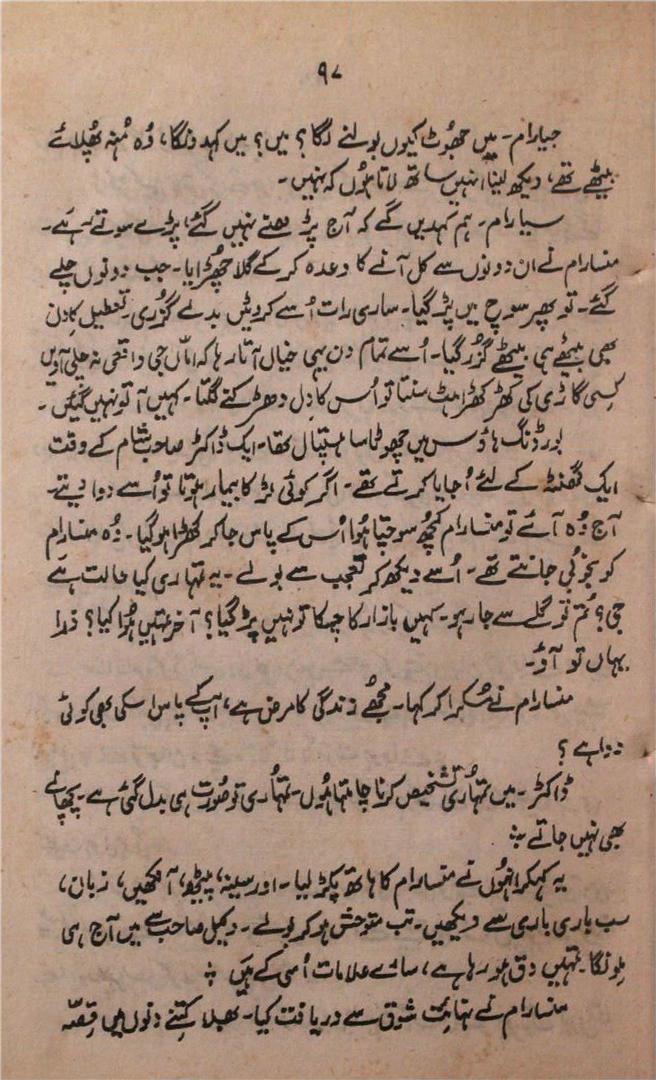 ۹۷
جیارام۔ میں جھوٹ کیوں بولنے لگا؟ میں؟ میں کہہ دونگا، وُہ مُنہ پھلائے
بیٹھے تھے، دیکھ لینا انہیں ساتھ لاتا ہُوں کہ نہیں۔
سیارام۔ ہم کہدیں گے کہ آج پڑھنے نہیں گئے، پڑے سوتے رہے۔
منسارام نے ان دونوں سے کل آنے کا وعدہ کر کے گلا چھڑایا۔ جب دونوں چلے
گئے۔ تو پھر سوچ میں پڑ گیا۔ ساری رات اُسے کروٹیں بدلے گزری۔ تعطیل کا دن
بھی بیٹھے ہی بیٹھے گزر گیا۔ اُسے تمام دن یہی خیال آتا رہا کہ اماں جی واقعی نہ چلی آویں
کسی گاڑی کی کھڑکھڑاہٹ سنتا تو اُس کا دِل دھڑکنے لگتا۔ کہیں آ تو نہیں گئیں۔
بورڈنگ ہاؤس میں چھوٹا سا ہسپتال تھا۔ ایک ڈاکٹر صاحب شام کے وقت
ایک گھنٹہ کے لئے آ جایا کرتے تھے۔ اگر کوئی لڑکا بیمار ہوتا تو اُسے دوا دیتے۔
آج وُہ آئے تو منسارام کچھ سوچتا ہُوا اُس کے پاس جا کر کھڑا ہو گیا۔ وُہ منسارام
کو بخوبی جانتے تھے۔ اُسے دیکھ کر تعجب سے بولے۔ یہ تمہاری کیا حالت ہے
جی؟ تم تو گلے سے جا رہو۔ کہیں بازار کا چسکا تو نہیں پڑ گیا؟ آخر تمہیں ہُوا کیا؟ ذرا
یہاں تو آؤ۔
منسارام نے مُسکرا کر کہا۔ مجھے زندگی کا مرض ہے، آپ کے پاس اسکی بھی کوئی
دوا ہے؟
ڈاکٹر۔ میں تمہاری تشخیص کرنا چاہتا ہُوں۔ تمہاری تو صُورت ہی بدل گئی ہے۔ پہچانے
بھی نہیں جاتے ؞
یہ کہکر انہوں نے منسارام کا ہاتھ پکڑ لیا۔ اور سینہ، پیٹھ، آنکھیں، زبان،
سب باری باری سے دیکھیں۔ تب متوحش ہو کر بولے۔ وکیل صاحب سے میں آج ہی
ملونگا۔ تمہیں دق ہو رہا ہے، سارے علامات اُسی کے ہیں ؞
منسارام نے نہایت شوق سے دریافت کیا۔ بھلا کتنے دنوں میں قصّہ